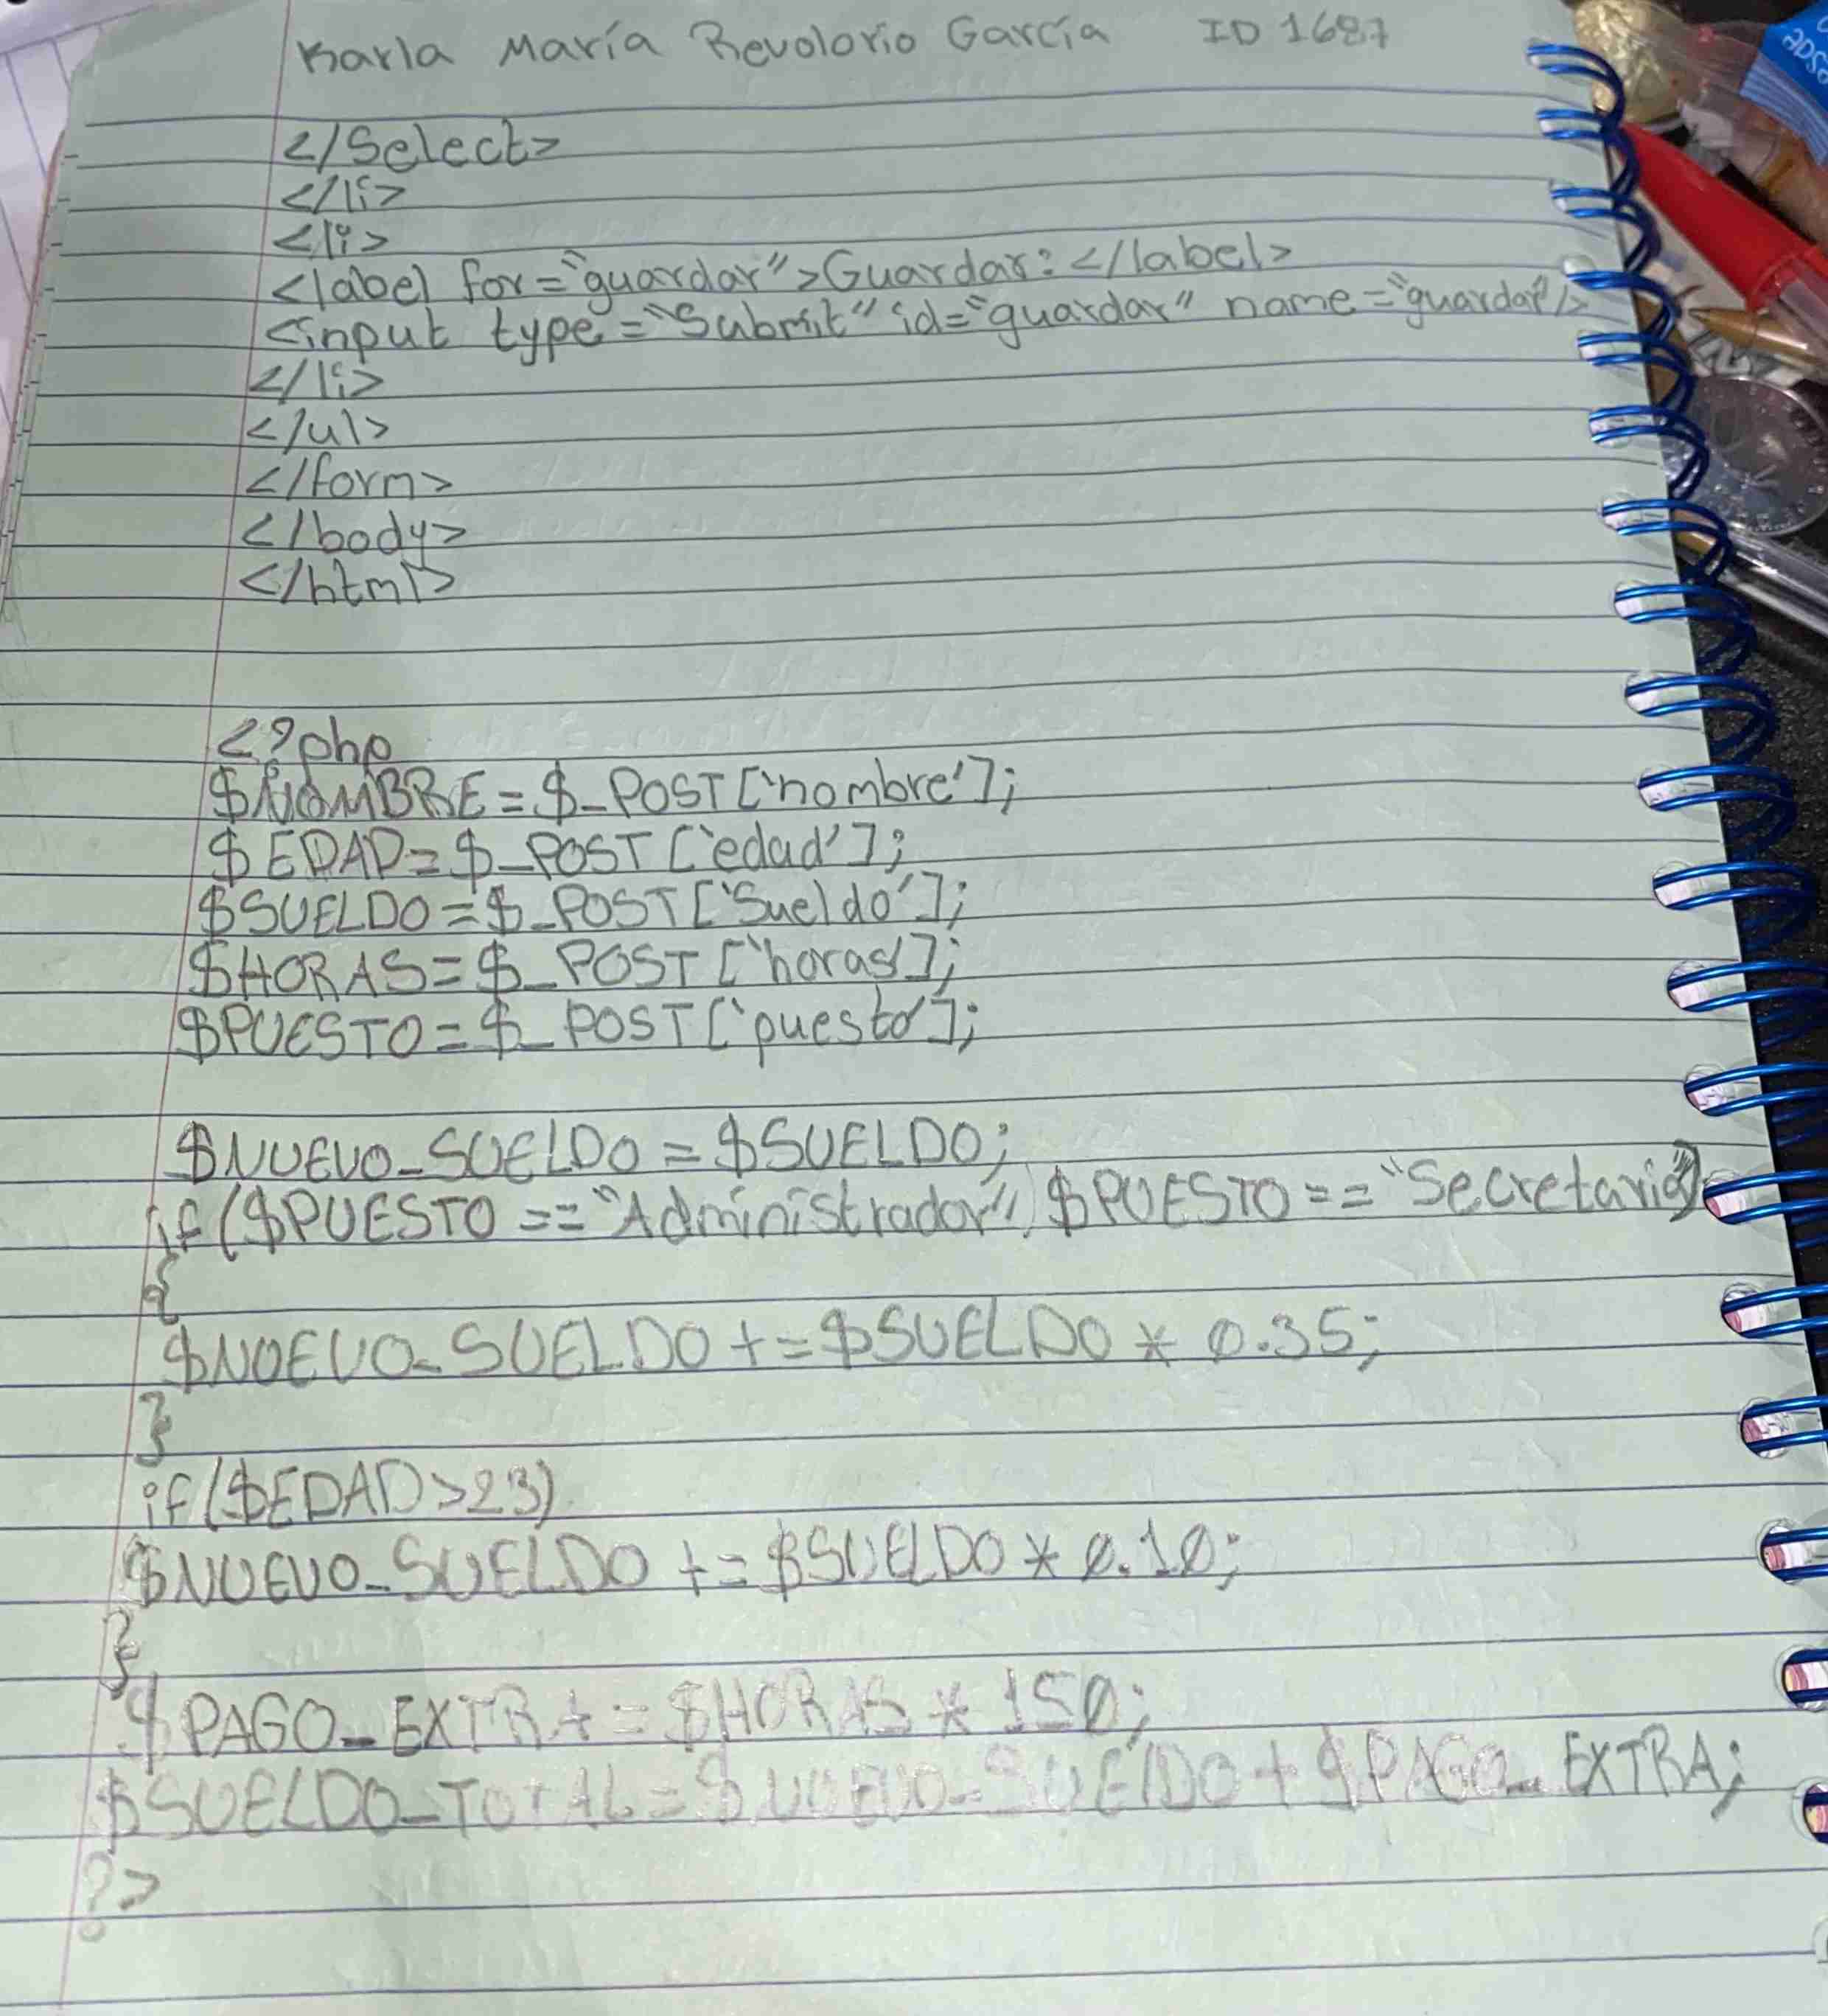 Karla María Revolorio García ID 1687
</Select>
</li>
<li>
<label for="guardar">Guardar: </label>
<input type="Submit" id="guardar" name="guardar"/>
</li>
</ul>
</form>
</body>
</html>
<?php
$NOMBRE=$_POST['nombre'];
$EDAD=$_POST['edad'];
$SUELDO=$_POST['Sueldo'];
$HORAS=$_POST['horas'];
$PUESTO=$_POST['puesto'];
$NUEVO_SUELDO = $SUELDO;
if($PUESTO == "Administrador", $PUESTO == "Secretario")
{
$NUEVO_SUELDO += $SUELDO * 0.35;
}
if($EDAD>23)
$NUEVO_SUELDO += $SUELDO * 0.10;
}
$PAGO_EXTRA = $HORAS * 150;
$SUELDO_TOTAL = $NUEVO_SUELDO + $PAGO_EXTRA;
?>